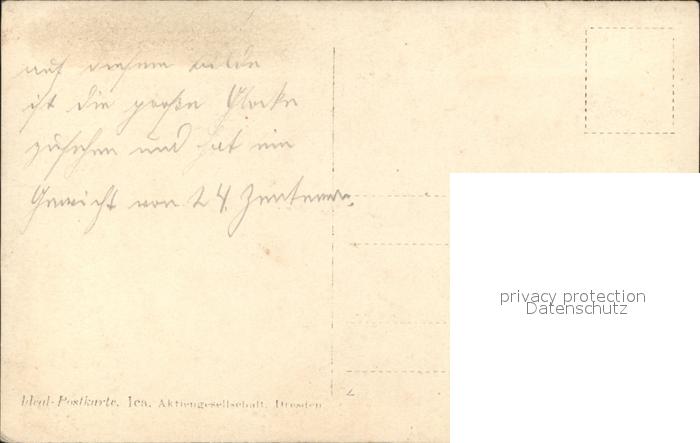 auf diesem bilde
ist die große Glocke
zusehen und hat ein
Gewicht von 24. Zentnern.
privacy protection
Datenschutz
Ideal-Postkarte. Ica, Aktiengesellschaft, Dresden